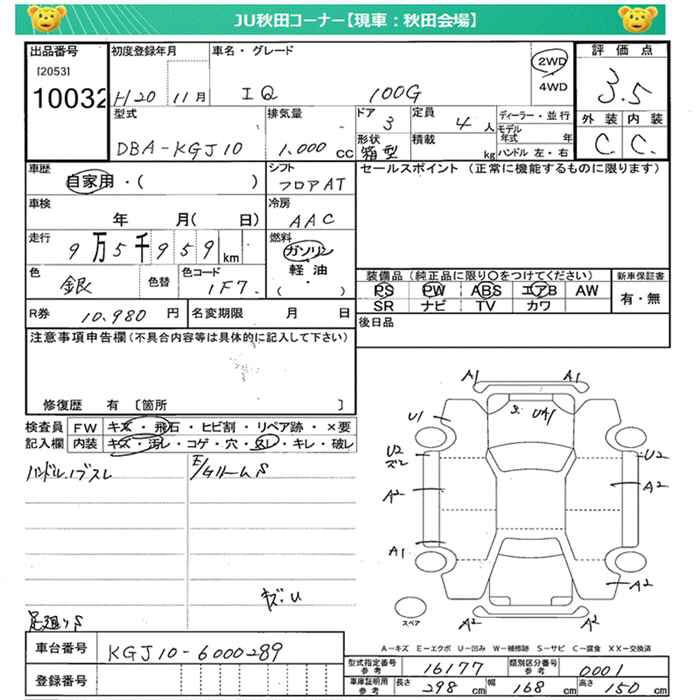 JU秋田コーナー【現車：秋田会場】
出品番号 [2053] 10032
初度登録年月 H20 11月
車名・グレード IQ 100G
2WD 4WD
評価点 3.5
外装 内装 C. C.
型式 DBA-KGJ10
排気量 1,000 CC
ドア 3
定員 4人
形状 箱型
積載 kg
ディーラー・並行
モデル年式 年
ハンドル 左・右
車歴 自家用・( )
シフト フロアAT
セールスポイント (正常に機能するものに限ります)
車検 年 月( 日)
冷房 AAC
走行 9万5千959km
燃料 ガソリン 軽油 ( )
色 銀 色替 色コード 1F7.
装備品 (純正品に限り○をつけてください)
新車保証書
PS PW ABS エアB AW
SR ナビ TV カワ
有・無
R券 10.980円
名変期限 月 日
後日品
注意事項申告欄(不具合内容等は具体的に記入して下さい)
修復歴 有 〔箇所 〕
検査員記入欄
FW キズ・飛石・ヒビ割・リペア跡・×要
内装 キズ・汚レ・コゲ・穴・スレ・キレ・破レ
ハンドル.ノブスレ
キズ・U
足廻りS
A1 A1
U1 3. UA1
U2 ズレ U2
A2 A2
A1 A2
A2 A2
スペア
A－キズ E－エクボ U－凹み W－補修跡 S－サビ C－腐食 XX－交換済
車台番号 KGJ10-6000289
登録番号
型式指定番号 参考 16177
類別区分番号 参考 0001
車庫証明用 参考 長さ 298cm 幅 168cm 高さ 150cm